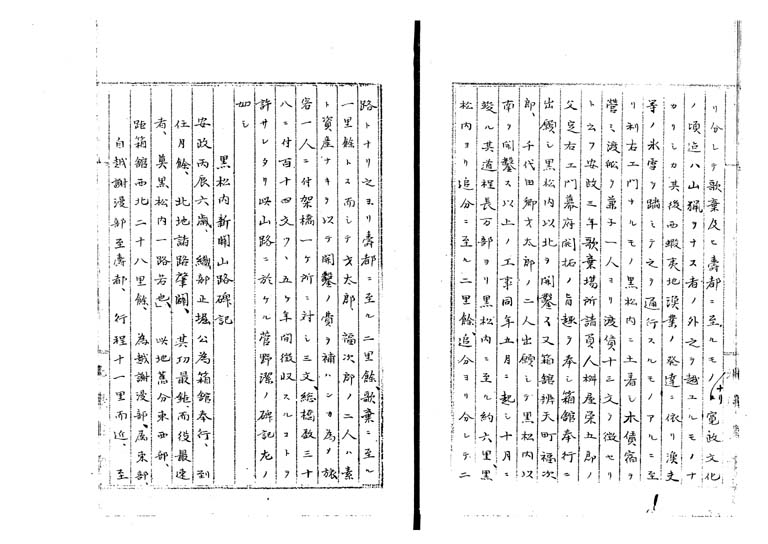 リ分レテ歌棄及ヒ壽都ニ至ルモノナリ寛政文化
ノ頃迄ハ山猟ヲナス者ノ外之ヲ越ユルモノナ
カリシカ其後西蝦夷地漁業ノ発達ニ依リ漁夫
等ノ氷雪ヲ踏ミテ之ヲ通行スルモノアルニ至
リ利右エ門ナルモノ黒松内ニ土着シ木債宿ヲ
營ミ渡船ヲ業トシ一人ヨリ渡債十三文ヲ徴セリ
ト云フ安政三年歌棄場所請負人桝屋栄五郎ノ
父定右エ門幕府開拓ノ旨趣ヲ奉シ箱館奉行ニ
出願シ黒松内以北ヲ開鑿ス又箱館辨天町福次
郎、千代田郷戈太郎ノ二人出願シテ黒松内以
南ヲ開鑿ス以上ノ工事同年五月ニ起シ十月ニ
竣ル其道程長万部ヨリ黒松内ニ至ル約六里、黒
松内ヨリ追分ニ至ル二里餘、追分ヨリ分レテ二
路トナリ之ヨリ壽都ニ至ル二里餘、歌棄ニ至ル
一里餘トス而シテ戈太郎 福次郎ノ二人ハ素
ト資産ナキヲ以テ開鑿ノ費ヲ補ハンカ為メ旅
客一人ニ付架橋一ケ所ニ対シ三文、総橋数三十
八ニ付百十四文ヲ、五ケ年間徴収スルコトヲ
許サレタリ此山路ニ於ケル菅野潔ノ碑記左ノ
如シ
黒松内新開山路碑記
安政丙辰六歳、織部正堀公為箱館奉行、到
任月餘、北地諸路肇闢、其功最鉅而後最速
者、莫黒松内一路若也、 此地旧分東西部、
距箱館西北二十八里餘、為越謝漫部、属東部、
自越謝漫部至壽都、 行程十一里而近、 至